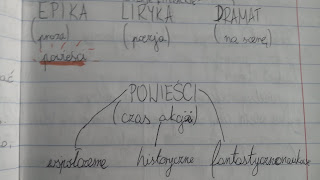 EPIKA LIRYKA DRAMAT
(proza) (poezja) (na scenę)
powieść
POWIEŚCI
(czas akcji)
współczesne historyczne fantastycznonaukowe